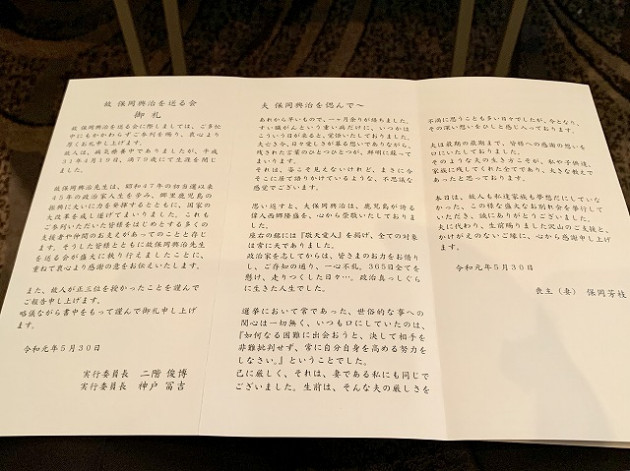 故 保岡興治を送る会
御 礼
故 保岡興治を送る会に際しましては、ご多忙
中にもかかわらずご参列を賜り、衷心より
厚く御礼申し上げます。
故人は、病気療養中でありましたが、平成
31年4月19日、満79歳にて生涯を閉じ
ました。
故保岡興治先生は、昭和47年の初当選以来
45年の政治家人生を歩み、郷里鹿児島の
振興に大いに力を発揮するとともに、国家の
大改革を成し遂げてまいりました。これも
ご参列いただいた皆様をはじめとする多くの
支援者や仲間のお支えがあってのことと存じ
ます。そうした皆様とともに故保岡興治先生
を送る会が盛大に執り行えましたことに、
重ねて衷心より感謝の意をお伝えいたします。
また、故人が正三位を授かったことを謹んで
ご報告申し上げます。
略儀ながら書中をもって謹んで御礼申し上げ
ます。
令和元年5月30日
実行委員長 二階 俊博
実行委員長 神戸 冨吉
夫 保岡興治を偲んで~
あれから早いもので、一ヶ月余りが経ちました。
すい臓がんという重い病だけに、いつかは
こういう日が来ると、覚悟いたしておりました。
夫亡き今、日々愛しさが募る想いでありながら、
残された言葉のひとつひとつが、鮮明に蘇って
まいります。
それは、姿こそ見えないけれど、まさに今
そこに居て語りかけているような、不思議な
感覚でございます。
思い返すと、夫保岡興治は、鹿児島が誇る
偉人西郷隆盛を、心から崇敬いたしており
ました。
座右の銘には『敬天愛人』を掲げ、全ての対象
は常に天でありました。
政治家を志してからは、皆さまのお力をお借り
し、ご存知の通り、一心不乱、365日全てを
懸け、走りつくした日々…。政治真っしぐら
に生きた人生でした。
選挙において常であった、世俗的な事への
関心は一切無く、いつも口にしていたのは、
『如何なる困難に出会おうと、決して相手を
非難批判せず、常に自分自身を高める努力を
しなさい。』ということでした。
己に厳しく、それは、妻である私にも同じで
ございました。生前は、そんな夫の厳しさを
不満に思うことも多い日々でしたが、今となり、
その深い想いをひしと感じ入っております。
夫は最期の最期まで、皆様への感謝の思いを
口にいたしておりました。
そのような夫の生き方こそが、私や子供達、
家族に残してくれた全てであり、大きな教えで
あったと思っております。
本日は、故人も私達家族も夢想だにしていな
かった、この様な盛大なお別れ会を挙行して
いただき、誠にありがとうございました。
夫に代わり、生前賜りました沢山のご支援と、
かけがえのないご縁に、心から感謝申し上げ
ます。
令和元年5月30日
喪主(妻) 保岡芳枝